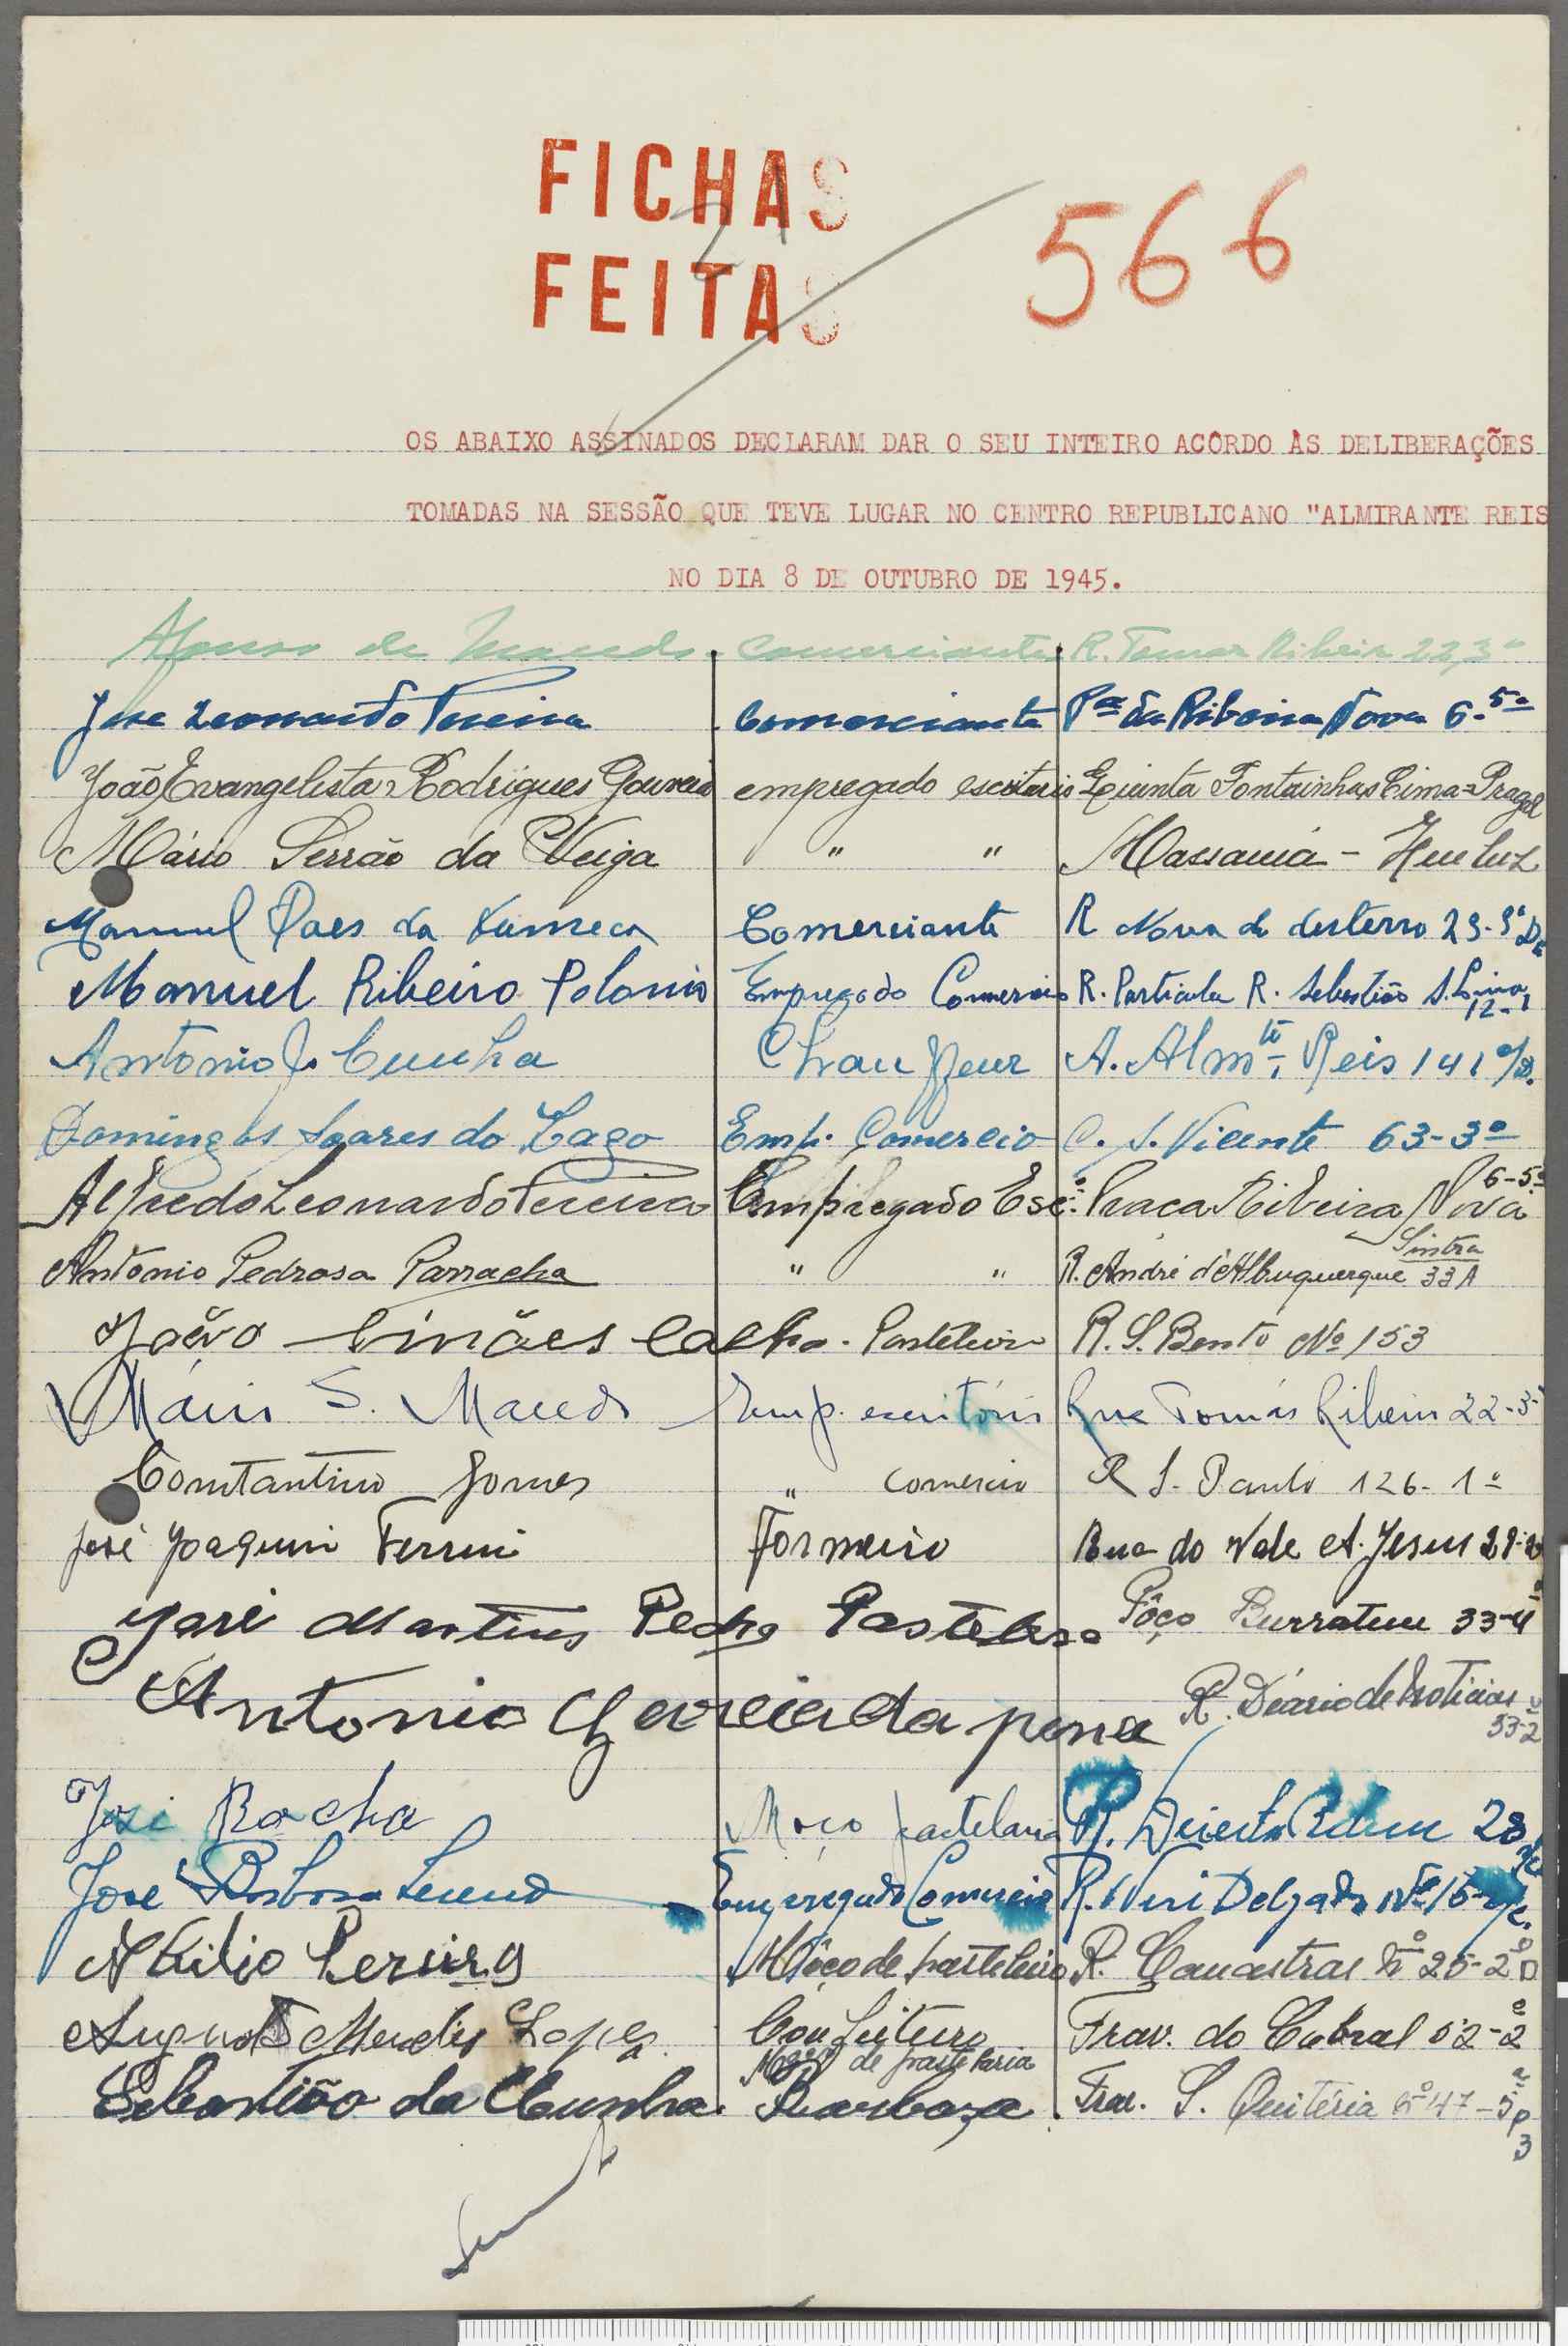 FICHAS
FEITAS
21
566
OS ABAIXO ASSINADOS DECLARAM DAR O SEU INTEIRO ACÔRDO ÀS DELIBERAÇÕES
TOMADAS NA SESSÃO QUE TEVE LUGAR NO CENTRO REPUBLICANO "ALMIRANTE REIS
NO DIA 8 DE OUTUBRO DE 1945.
de Macedo. Comerciante R. Tomas Ribeiro 22,3º
José Leonardo Pereira Comerciante Pça da Ribeira Nova 6-5º
João Evangelista Rodrigues Gouveia empregado escritorio Quinta Fontainhas Cima=Pragal
Mário Serrão da Veiga " " Massamá - Queluz
Manuel Paes da Fonseca Comerciante R Nova do desterro 29-3º
Manuel Ribeiro Polonio Empregado Comercio R. Particular R. Sebastião S. Lima 12-1
Antonio J. Cunha Chauffeur A. Almte. Reis 141
Domingos Soares do Lago Emp. Comercio C. S. Vicente 63-3º
Alfredo Leonardo Pereira Empregado Esc. Praça Ribeira Nova 6-5º
António Pedrosa Parracha " " R. André d'Albuquerque 33A Sintra
João Simões Coelho - Pasteleiro R. S. Bento Nº 153
Mário S. Macedo Emp. escritório Rua Tomás Ribeiro 22-3º
Constantino Gomes " comercio R S. Paulo 126-1º
José Joaquim Ferrun Forneiro Rua do Vale A. Jesus 29-2º
José Martins Pedro Pasteleiro Pôço Burratem 33-4º
Antonio Garcia da pena R. Diario de Noticias 33-2º
José Rocha Moço pastelaria R. Direita 28
José Barbosa Empregado Comercio R. Neri Delgado Nº 15
Abilio Pereira Môço de pasteleiro R. Canastras nº 25-2º D
Augusto Mendes Lopes Confeiteiro Trav. do Cabral 52-2º
Sebastião da Cunha Barboza Moço de pastelaria Trav. S. Quitéria nº 47-